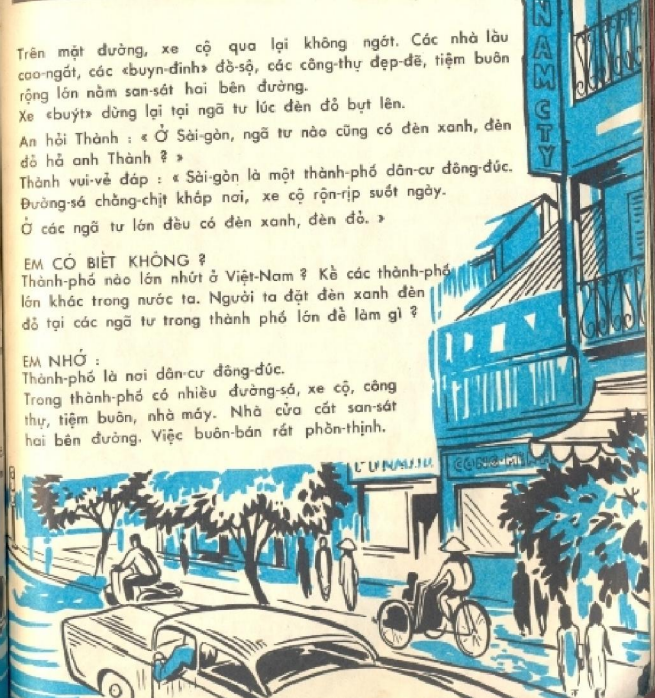 Trên mặt đường, xe cộ qua lại không ngớt. Các nhà lầu
cao-ngất, các «buyn-đinh» đồ-sộ, các công-thự đẹp-đẽ, tiệm buôn
rộng lớn nằm san-sát hai bên đường.
Xe «buýt» dừng lại tại ngã tư lúc đèn đỏ bựt lên.
An hỏi Thành : « Ở Sài-gòn, ngã tư nào cũng có đèn xanh, đèn
đỏ hả anh Thành ? »
Thành vui-vẻ đáp : « Sài-gòn là một thành-phố dân-cư đông-đúc.
Đường-sá chằng-chịt khắp nơi, xe cộ rộn-rịp suốt ngày.
Ở các ngã tư lớn đều có đèn xanh, đèn đỏ. »
EM CÓ BIẾT KHÔNG ?
Thành-phố nào lớn nhứt ở Việt-Nam ? Kể các thành-phố
lớn khác trong nước ta. Người ta đặt đèn xanh đèn
đỏ tại các ngã tư trong thành phố lớn để làm gì ?
EM NHỚ :
Thành-phố là nơi dân-cư đông-đúc.
Trong thành-phố có nhiều đường-sá, xe cộ, công
thự, tiệm buôn, nhà máy. Nhà cửa cất san-sát
hai bên đường. Việc buôn-bán rất phồn-thịnh.
N AM CTY